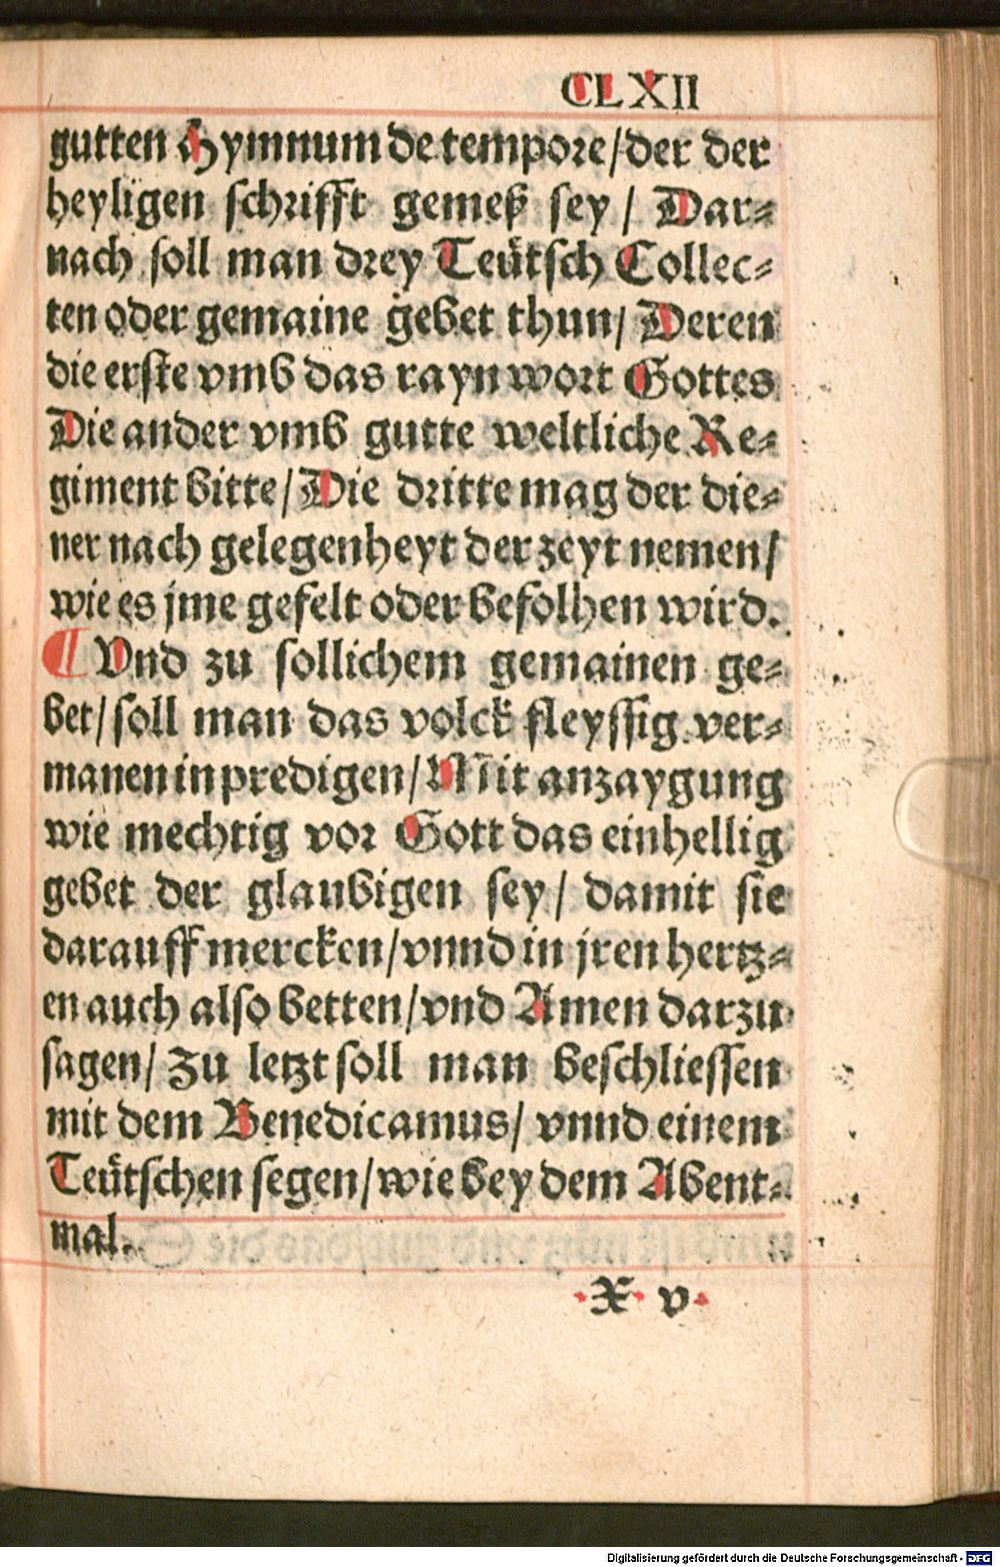 CLXII
gutten Hymnum de tempore/der der
heyligen schrifft gemeß sey/ Dar-
nach soll man drey Teütsch Collec-
ten oder gemaine gebet thun/ Deren
die erste vmb das rayn wort Gottes
Die ander vmb gutte weltliche Re-
giment bitte/Die dritte mag der die-
ner nach gelegenheyt der zeyt nemen/
wie es jme gefelt oder befolhen wird.
¶ Vnd zu sollichem gemainen ge-
bet/soll man das volck fleyssig ver-
manen in predigen/Mit anzaygung
wie mechtig vor Gott das einhellig
gebet der glaubigen sey/ damit sie
darauff mercken/vnnd in jren hertz-
en auch also betten/vnd Amen darzu
sagen/Zu letzt soll man beschliessen
mit dem Benedicamus/ vnnd einem
Teütschen segen/wie bey dem Abent-
mal.
X v
Digitalisierung gefördert durch die Deutsche Forschungsgemeinschaft - DFG